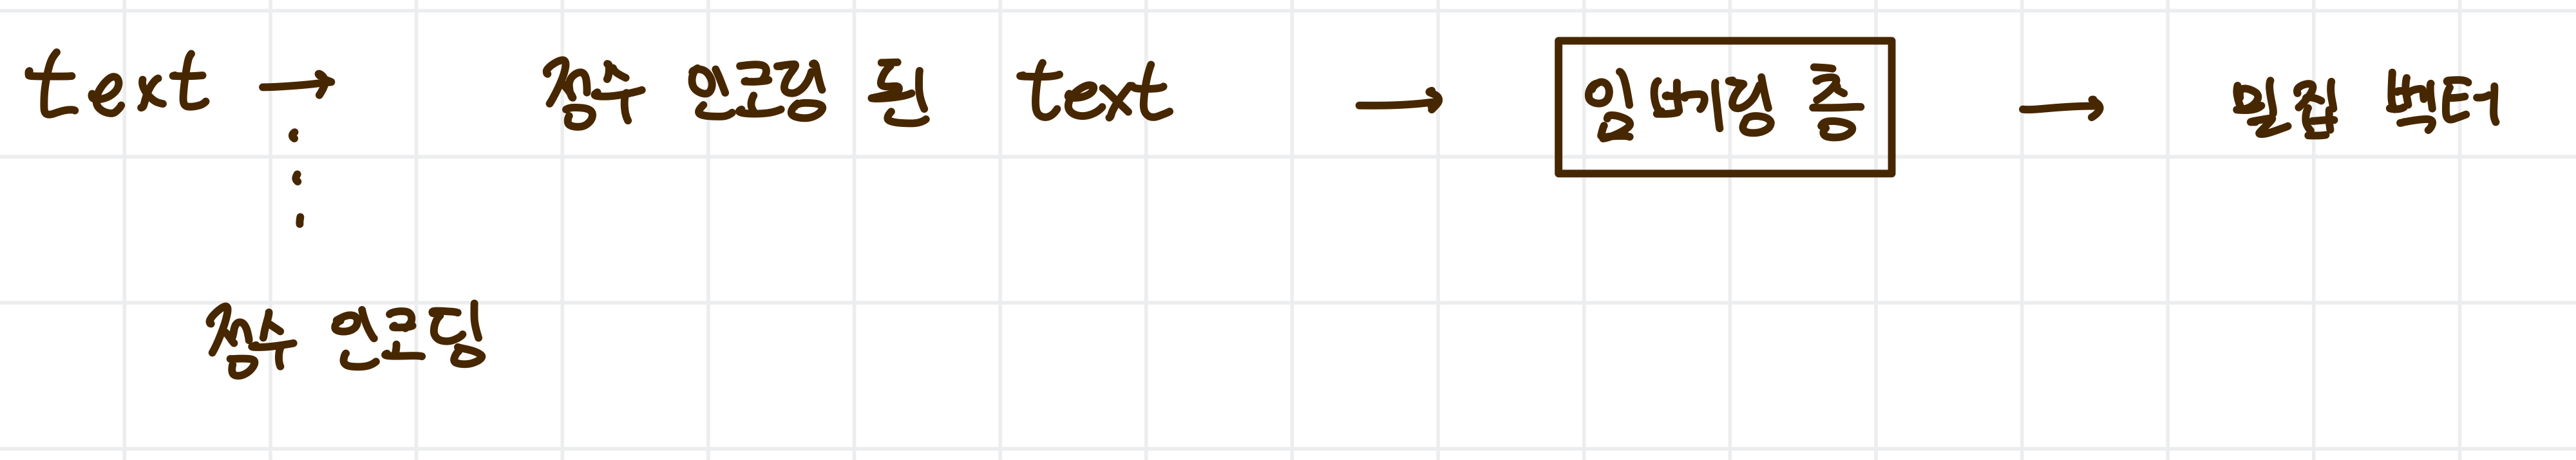 text → 정수 인코딩 된 text → 임베딩 층 → 밀집 벡터
정수 인코딩